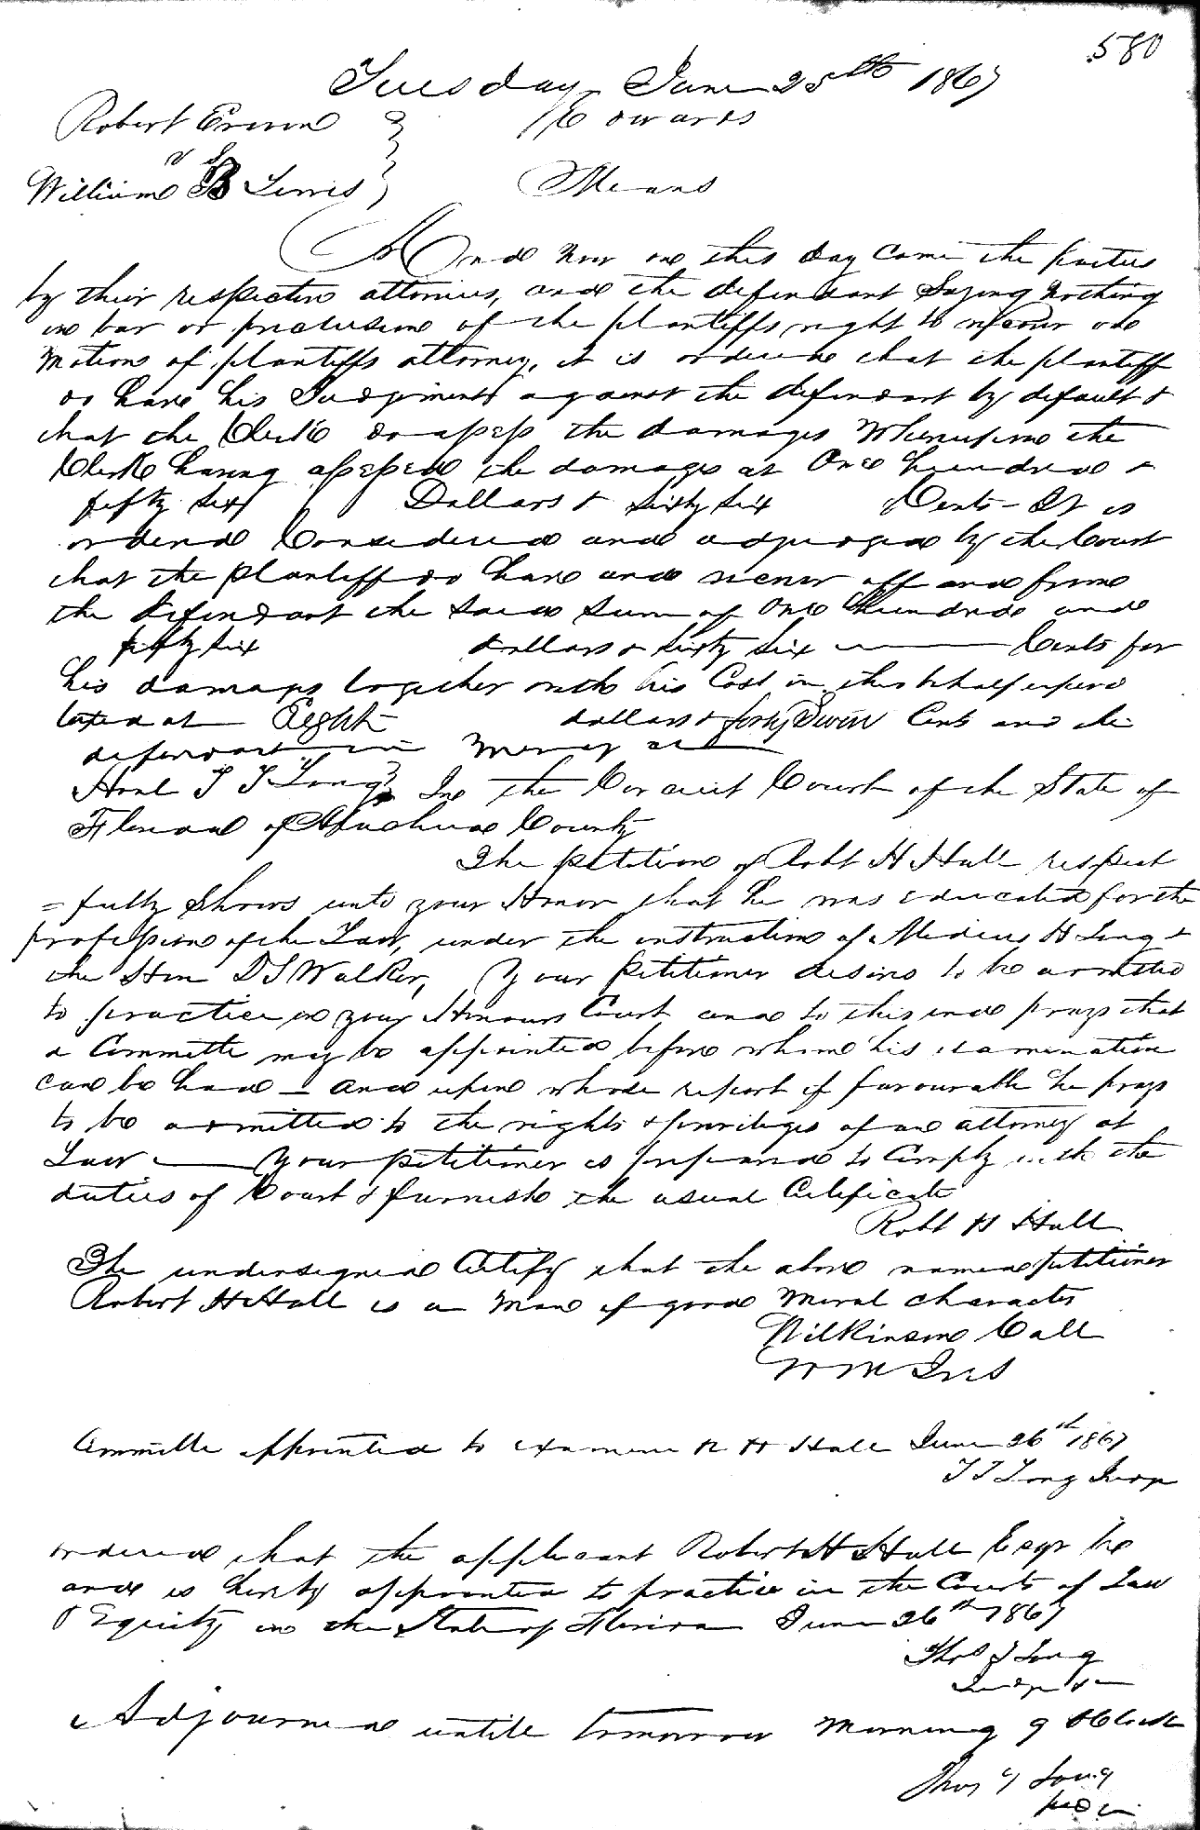 580
Tuesday June 25th 1867
Robert Erwin
vs
William B Lewis
Means
And now on this day came the parties
by their respective attornies, and the defendant Saying nothing
in bar or preclusion of the plantiffs right to recover on
Motion of plantiffs attorney, it is ordered that the plantiff
do have his Judgment against the defendant by default &
that the Clerk do assess the damages Whereupon the
Clerk having assessed the damages at One hundred &
fifty six Dollars & sixty six Cents - It is
ordered Considered and adjudged by the Court
that the plantiff do have and recover off and from
the defendant the said sum of One Hundred and
fifty six dollars & sixty six Cents for
his damages together with his Cost in this behalf expend
taxed at Eight dollars & forty Seven Cents and the
defendant in Mercy &c
Honl T T Long In the Circuit Court of the State of
Florida of Alachua County
The petition of Robt H Hall respect
=fully Shows unto your Honor that he was educated for the
profession of the Law, under the instruction of Medicus H Long &
the Hon D S Walker, Your petitioner desires to be admitted
to practice in your Honours Court and to this end prays that
a Committe may be appointed before whom his examination
can be had - and upon whose report if favourable he prays
to be admitted to the rights & privileges of an attorney at
Law Your petitioner is prepared to Comply with the
duties of Court & furnish the usual Certificate
Robt H Hall
The undersigned Certify that the above named petitioner
Robert H Hall is a Man of good Moral character
Wilkinson Call
W M Ives
Committe appointed to examine R H Hall June 26th 1867
T T Long Judge
ordered that the applicant Robert H Hall Esqr be
and is hereby appointed to practice in the Courts of Law
& Equity in the State of Florida June 26th 1867
Thos T Long
Judge &c
Adjourned untill tomorrow Morning 9 OClock
Thos T Long